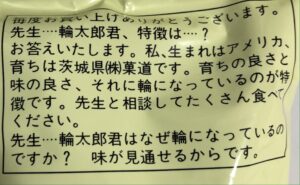 毎度お買い上げありがとうございます。
先生…輪太郎君、特徴は…?
お答えいたします。私、生まれはアメリカ、
育ちは茨城県㈱菓道です。育ちの良さと
味の良さ、それに輪になっているのが特
徴です。先生と相談してたくさん食べて
ください。
先生…輪太郎君はなぜ輪になっているの
ですか? 味が見通せるからです。